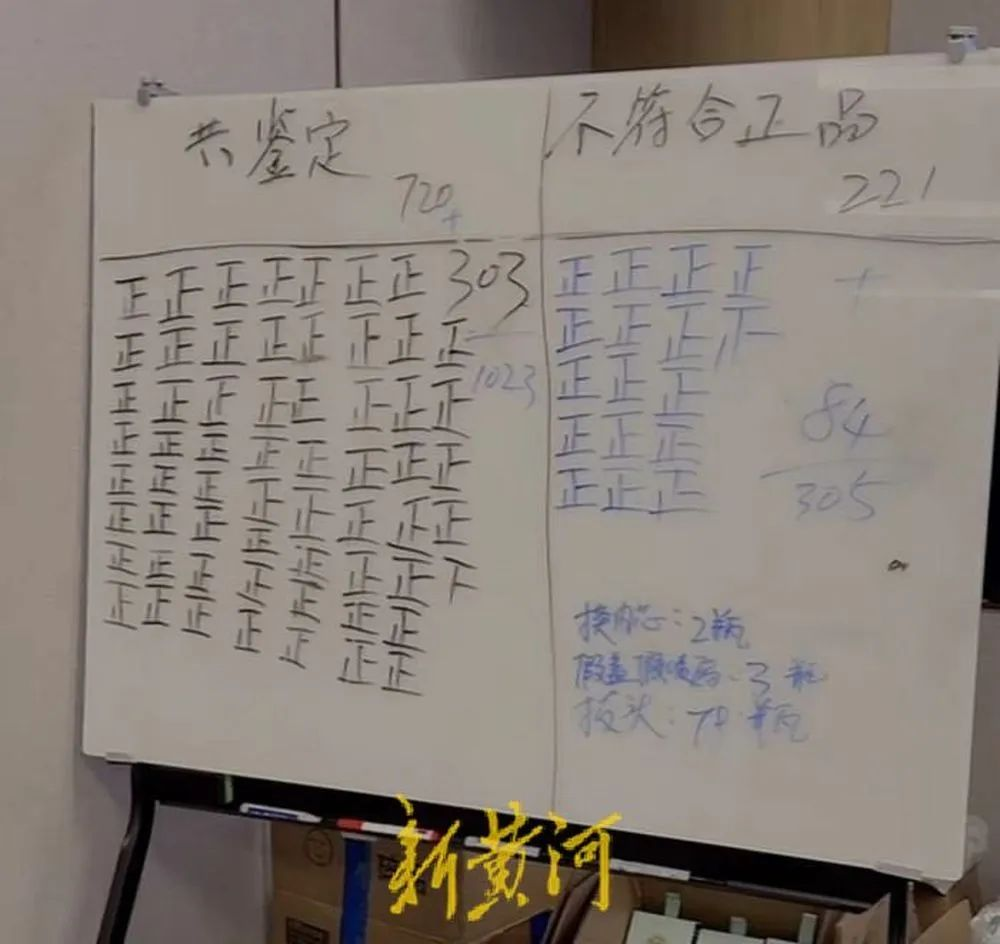 共鉴定
720
+
303
1023
正正正正正正正
正正正正正正正正
正正正正正正正正
正正正正正正正正
正正正正正正正正
正正正正正正正下
正正正正正正正
正正正正正正正
不符合正品
221
+
84
305
正正正正
正正正正
正正正
正正正
正正正
换内芯：2瓶
假盖假喷码：3瓶
拔头：79瓶
新黄河